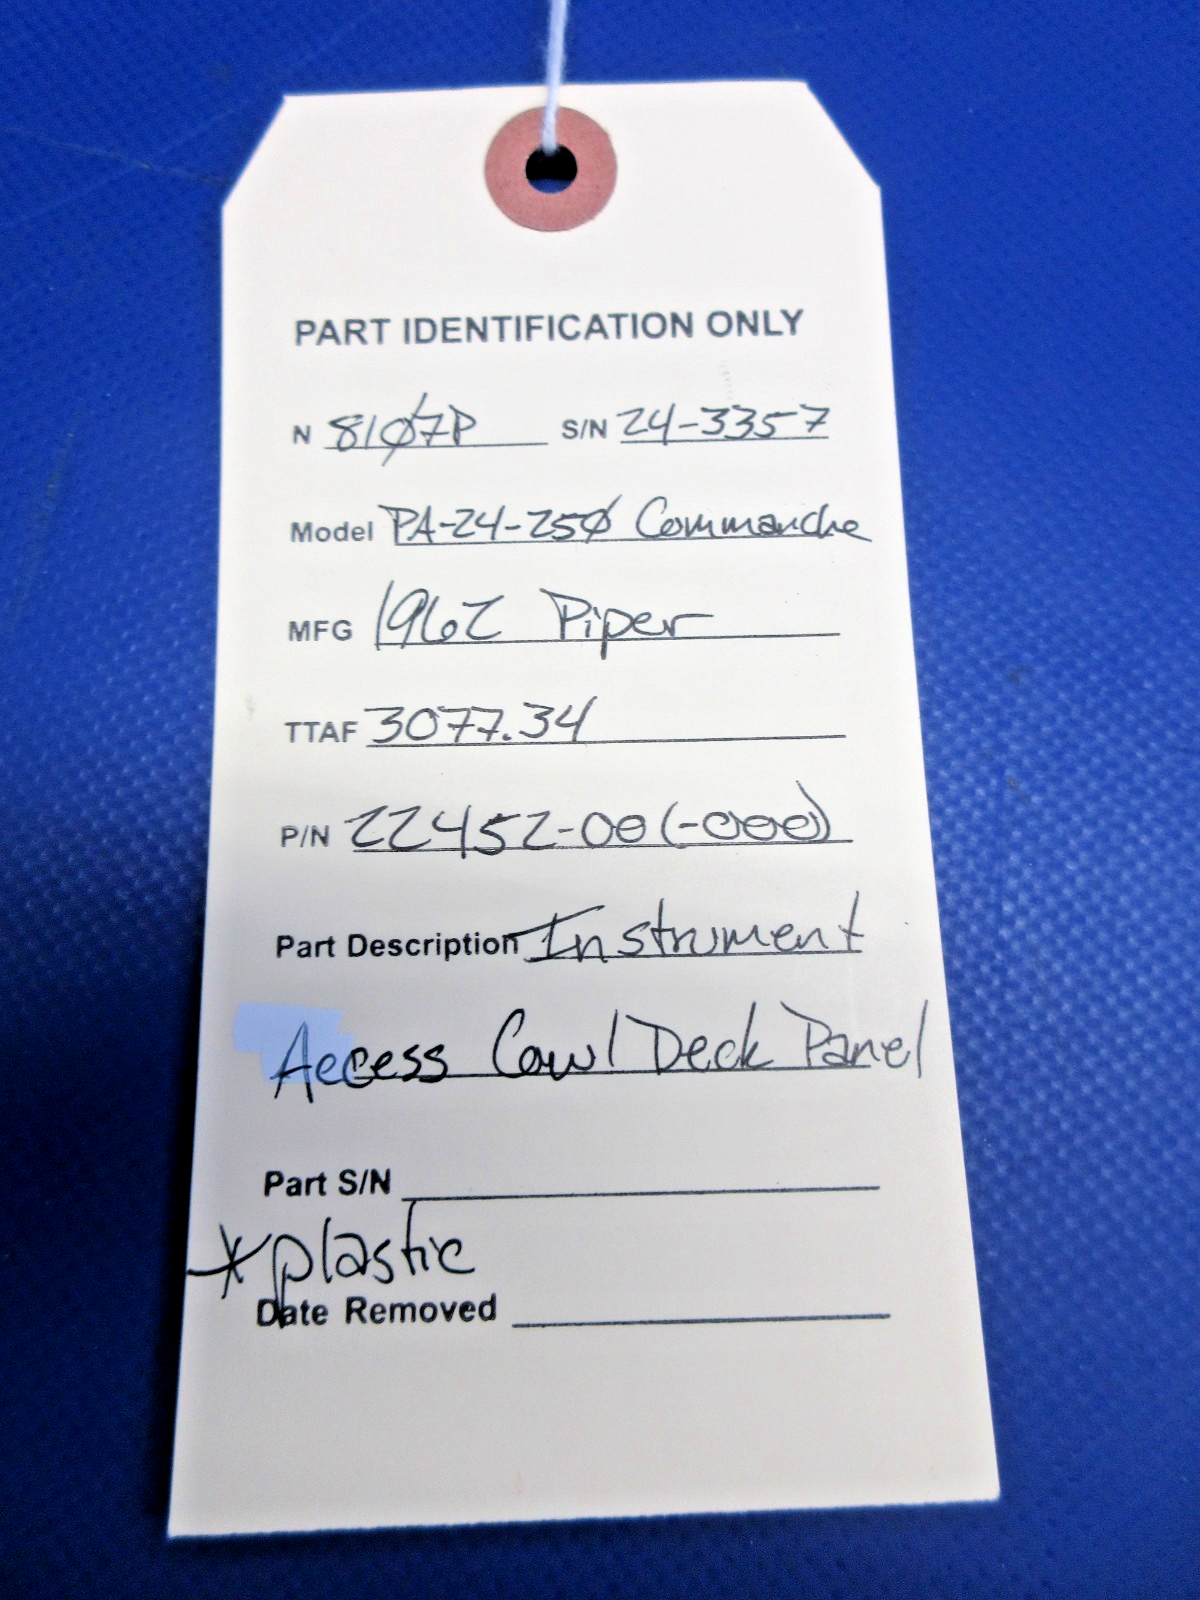 PART IDENTIFICATION ONLY
N 8107P S/N 24-3357
Model PA-24-250 Commanche
MFG 1962 Piper
TTAF 3077.34
P/N 22452-00 (-000)
Part Description Instrument
Access Cowl Deck Panel
Part S/N
*plastic
Date Removed